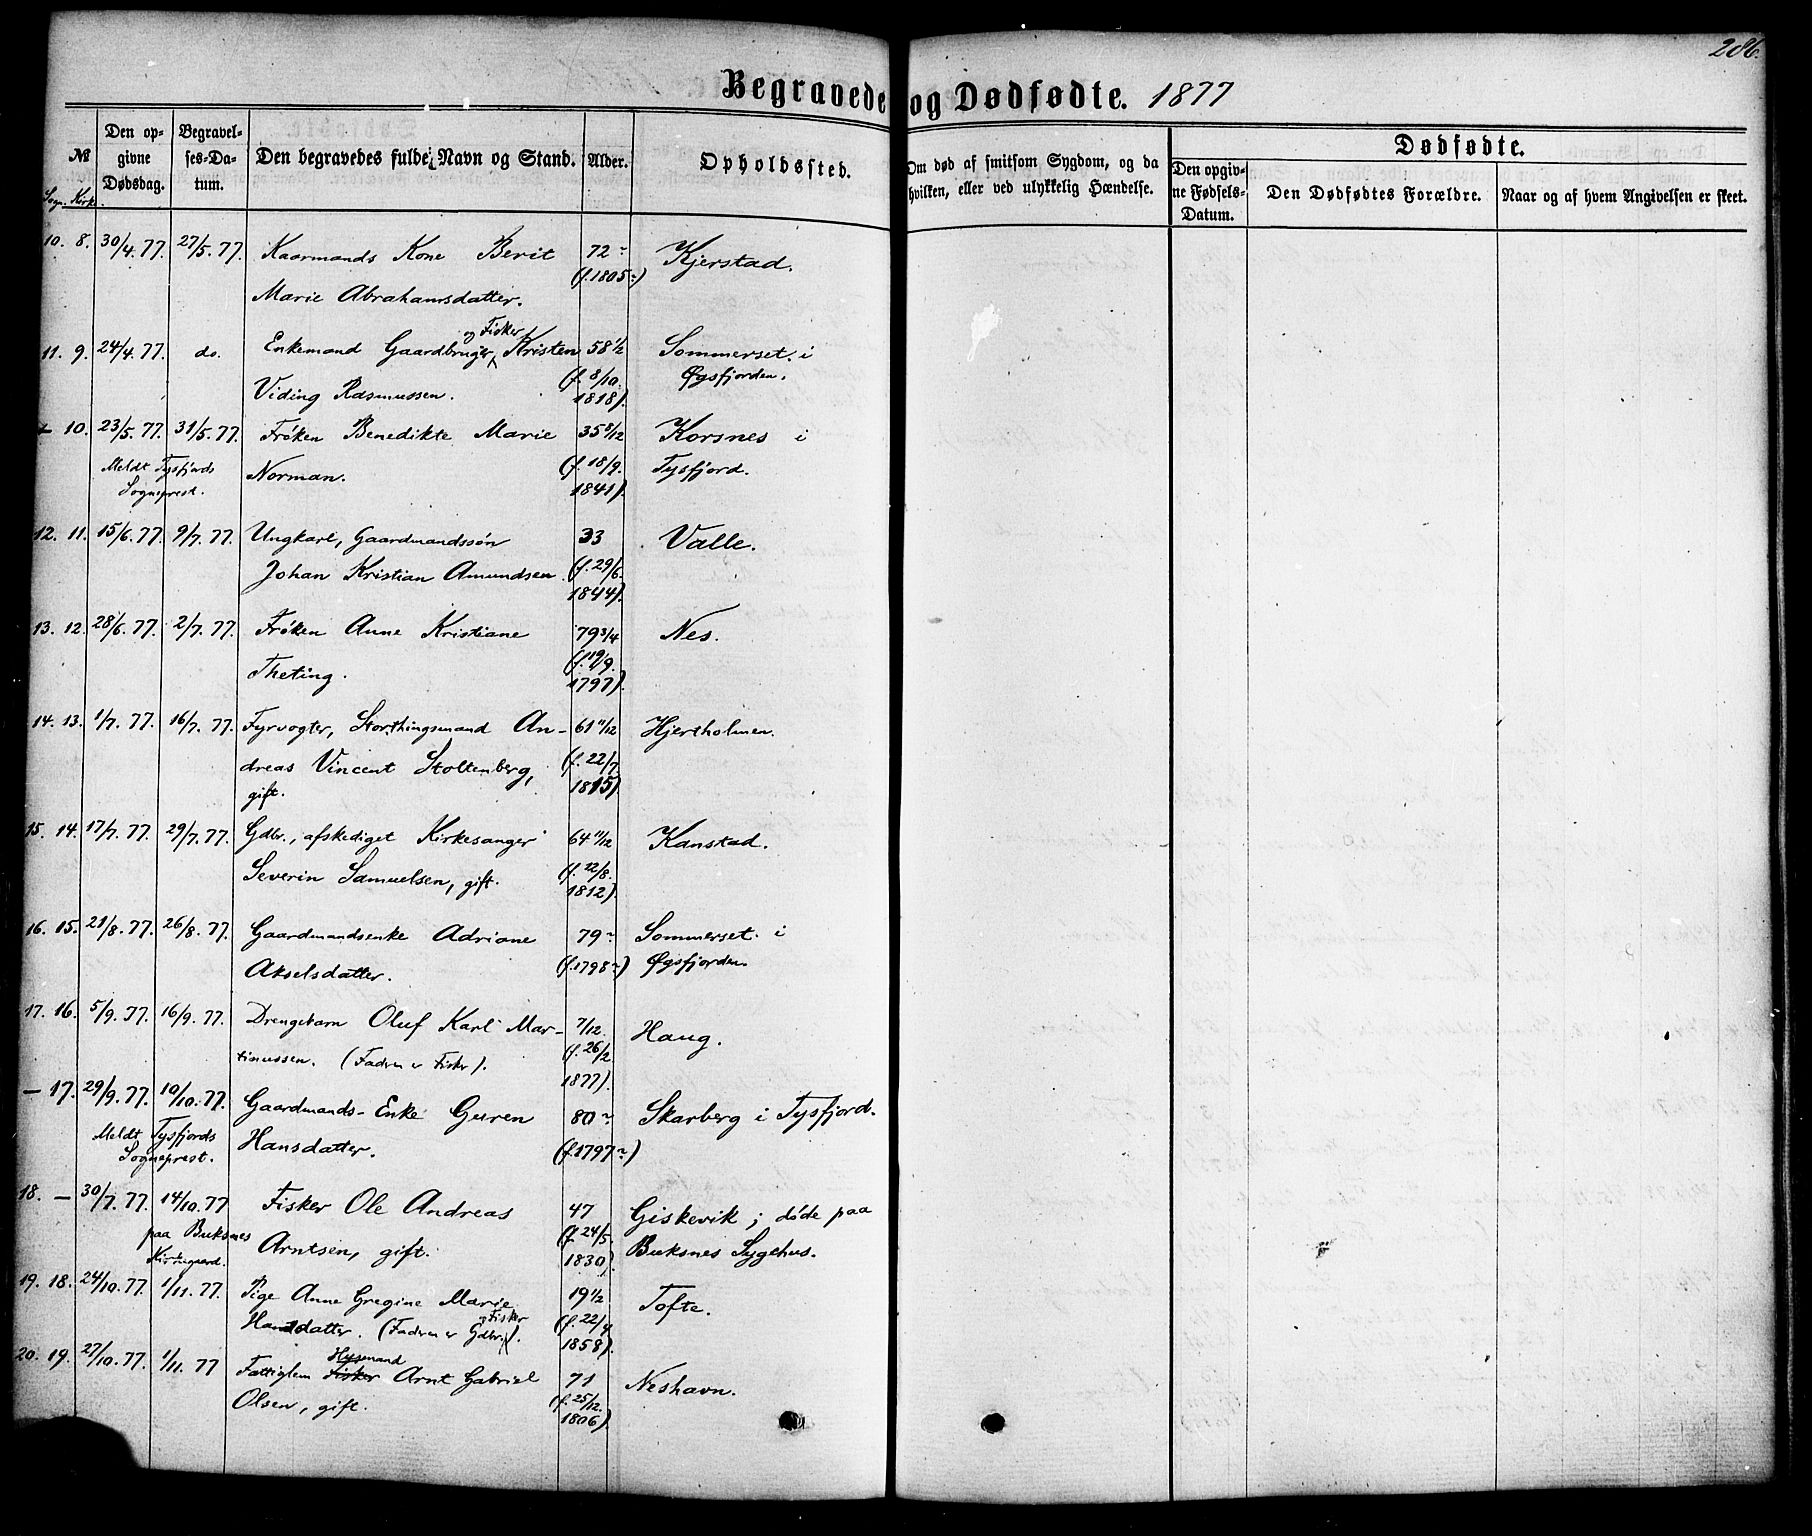 286.
Begravede og Dødfødte. 1877
№
Sogn. Kirke.
Den opgivne Dødsdag.
Begravelses-Datum.
Den begravedes fulde Navn og Stand.
Alder.
Opholdssted.
Om død af smitsom Sygdom, og da hvilken, eller ved ulykkelig Hændelse.
Dødfødte.
Den opgivne Fødsels-Datum.
Den Dødfødtes Forældre.
Naar og af hvem Angivelsen er skeet.
10. 8. 30/4. 77. 27/5. 77. Kaarmands Kone Berit 72 ~ Kjerstad.
(f. 1805~)
Marie Abrahamsdatter.
11. 9. 24/4. 77. do. Enkemand Gaardbruger og Fisker Kristen 58 1/2 Sommerset i
Viding Rasmussen. (f. 8/10. 1818). Øgsfjorden.
– 10. 23/5. 77. 31/5. 77. Frøken Benedikte Marie 35 8/12 Korsnes i
Meldt Tysfjords Norman. (f. 18/9. Tysfjord.
Sogneprest. 1841).
12. 11. 15/6. 77. 9/7. 77. Ungkarl, Gaardmandssøn 33 Valle.
Johan Kristian Amundsen. (f. 29/6.
1844).
13. 12. 28/6. 77. 2/7. 77. Frøken Anne Kristiane 79 3/4 Nes.
Theting. (f. 19/9.
1797).
14. 13. 1/7. 77. 16/7. 77. Fyrvogter, Storthingsmand An- 61 11/12 Hjertholmen.
dreas Vincent Stoltenberg, (f. 22/7
gift. 1815)
15. 14. 17/7. 77. 29/7. 77. Gdbr., afskediget Kirkesanger 64 11/12 Kanstad.
Severin Samuelsen, gift. (f. 22/8.
1812).
16. 15. 21/8. 77. 26/8. 77. Gaardmandsenke Adriane 79 ~ Sommerset i
Akselsdatter. (f. 1798~) Øgsfjorden.
17. 16. 5/9. 77. 16/9. 77. Drengebarn Oluf Karl Mar- 7/12. Haug.
tinussen. (Faderen er Fisker). (f. 26/2.
1877).
– 17. 29/9. 77. 10/10. 77. Gaardmands-Enke Guren 80 ~ Skarberg i Tysfjord.
Meldt Tysfjords Hansdatter. (f. 1797~)
Sogneprest.
18. – 30/7. 77. 14/10. 77 Fisker Ole Andreas 47 Giskevik; døde paa
paa Buksnes Arntsen, gift. (f. 24/5. Buksnes Sygehus.
Kirkegaard. 1830).
19. 18. 24/10. 77. 1/11. 77. Pige Anne Gregine Marie 19 1/2 Tofte.
Hansdatter. (Faderen er Gdbr. og Fisker). (f. 22/4
1858).
20. 19. 27/10. 77. 1/11. 77 Fattiglem Fisker Husmand Arnt Gabriel 71 Neshavn.
Olsen, gift. (f. 25/12.
1806).